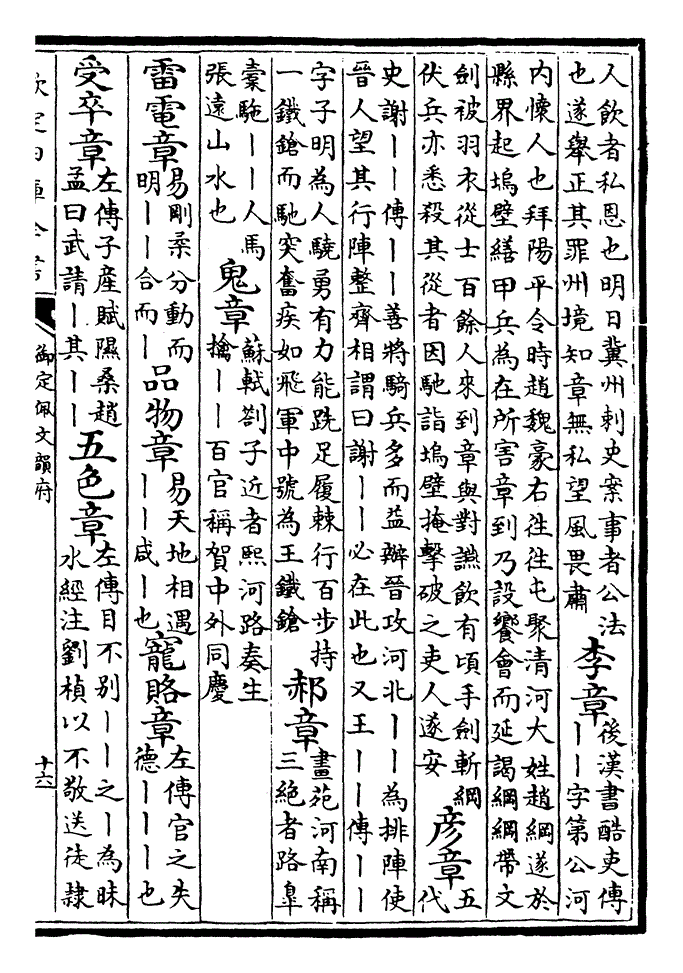 人飲者私恩也明日冀州刺史案事者公法
也遂舉正其罪州境知章無私望風畏肅
李章
後漢書酷吏傳
丨丨字第公河
內懷人也拜陽平令時趙魏豪右往往屯聚清河大姓趙綱遂於
縣界起塢壁繕甲兵為在所害章到乃設饗會而延謁綱綱帶文
劍被羽衣從士百餘人來到章與對讌飲有頃手劍斬綱
伏兵亦悉殺其從者因馳詣塢壁掩擊破之吏人遂安
彥章
五
代
史謝丨丨傳丨丨善將騎兵多而益辦晉攻河北丨丨為排陣使
晉人望其行陣整齊相謂曰謝丨丨必在此也又王丨丨傳丨丨
字子明為人驍勇有力能跣足履棘行百步持
一鐵鎗而馳突奮疾如飛軍中號為王鐵鎗
郝章
畫苑河南稱
三絕者路皐
橐駞丨丨人馬
張遠山水也
鬼章
蘇軾劄子近者熙河路奏生
擒丨丨百官稱賀中外同慶
雷電章
易剛柔分動而
明丨丨合而丨
品物章
易天地相遇
丨丨咸丨也
寵賂章
左傳官之失
德丨丨丨也
受卒章
左傳子產賦隰桑趙
孟曰武請丨其丨丨
五色章
左傳目不别丨丨之丨為昧
水經注劉楨以不敬送徒隸
欽定四庫全書
御定佩文韻府
十六